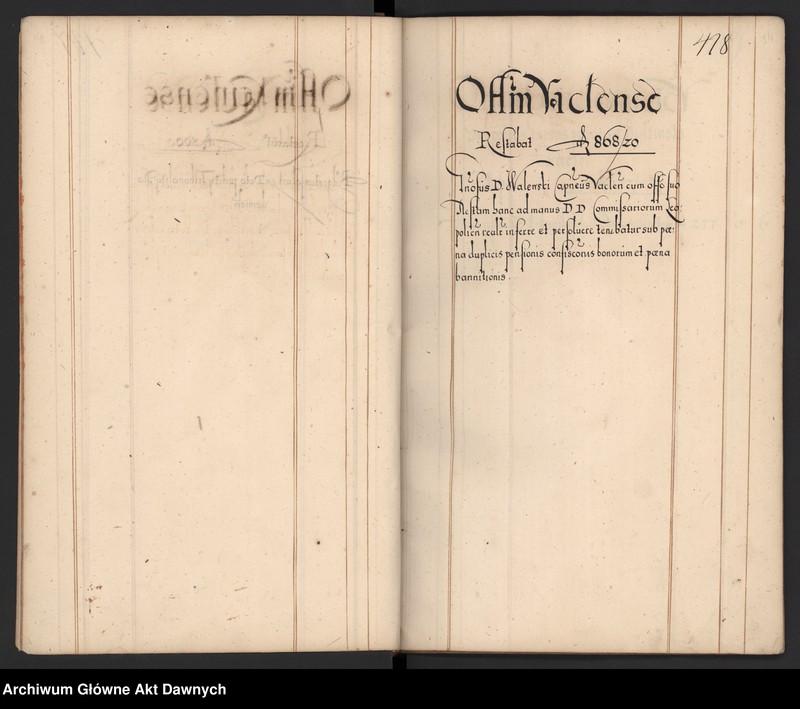 418
Offm Vaclense
Restabat ſſ 868/20
Gnosus D. Walenski Capneus Vaclen cum offo suo
Restam hanc ad manus D D Commissariorum Leo-
polien realr inferre et persoluere tenebatur sub pœ-
na duplicis pensionis confisconis bonorum et pœna
bannitionis.
Archiwum Główne Akt Dawnych